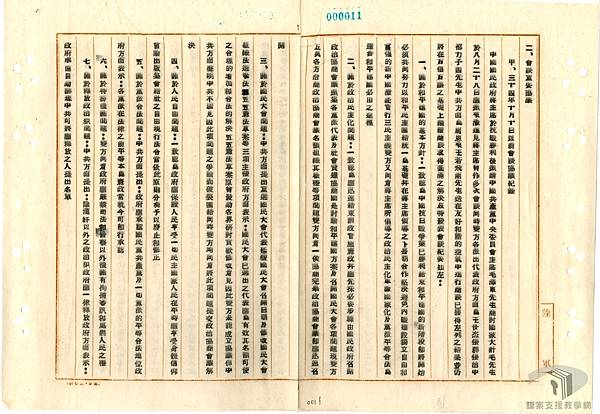 000011
二、會談重要協議
甲、三十四年十月十日政府會談協議紀錄
中國國民政府蔣主席於抗戰勝利後邀請中國共產黨中央委員會主席毛澤東先生商討國家大計毛先生
於八月二十八日應邀來渝進見蔣主席曾作多次會談同時雙方各派出代表政府方面為王世杰張群張治中
邵力子四先生中共方面為周恩來王若飛兩先生迭在友好和諧的空氣中進行商談已獲得左列之結果並仍
將在互信互讓之基礎上繼續商談求得圓滿之解決茲特發表會談紀要如左：
一、關於和平建國的基本方針：一致認為中國抗日戰爭業已勝利結束和平建國的新階段即將開始
必須共同努力以和平民主團結統一為基礎並在蔣主席領導之下長期合作堅決避免內戰建設獨立自由和
富強的新中國徹底實行三民主義雙方又同認蔣主席所倡導之政治民主化軍隊國家化及黨派平等合法為
達到和平建國必由之途徑
二、關於政治民主化問題：一致認為應迅速結束訓政實施憲政並應先採必要步驟由國民政府召開
政治協商會議邀集各黨派代表及社會賢達協商國是討論和平建國方案及召開國民大會各項問題現雙方
正與各方洽商政治協商會議名額組織及其職權等項問題雙方同意一俟洽商完畢政治協商會議即應迅速召
開
三、關於國民大會問題：中共方面提出重選國民大會代表延緩國民大會召開日期及修改國民大會
組織法選舉法和五五憲法草案等三項主張政府方面表示：國民大會已選出之代表應為有效其名額可使
之合理的增加和合法的解決五五憲法草案原曾發動各界研討貢獻修改意見因此雙方未能成立協議但中
共方面聲明中共不願見因此項問題之爭論而破裂團結同時雙方均同意將此項問題提交政治協商會議解
決
四、關於人民自由問題：一致認為政府應保證人民享受一切民主國家人民在平時應享受身體信仰
言論出版集會結社之自由現行法令當依此原則分別予以廢止或修正
五、關於黨派合法問題：中共方面提出：政府應承認國民黨共產黨及一切黨派的平等合法地位政
府方面表示：各黨派在法律之前平等本為憲政常軌今可即行承認
六、關於特務機關問題：雙方同意政府應嚴禁司法和警察以外機關有拘捕審訊和處罰人民之權
七、關於釋放政治犯問題：中共方面提出：除漢奸以外之政治犯政府應一律釋放政府方面表示：
政府準備自動辦理中共可將應釋放之人提出名單
檔案支援教學網